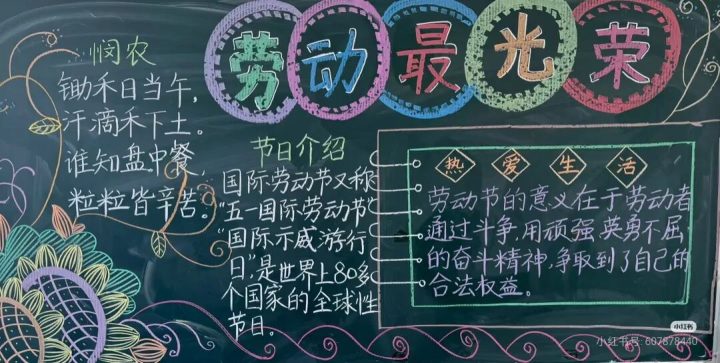 劳动最光荣
悯农
锄禾日当午,
汗滴禾下土。
谁知盘中餐,
粒粒皆辛苦。
节日介绍
国际劳动节又称
“五一国际劳动节”
“国际示威游行
日”,是世界上80多
个国家的全球性
节日。
热爱生活
劳动节的意义在于劳动者
通过斗争,用顽强、英勇不屈
的奋斗精神,争取到了自己的
合法权益。
小红书
小红书号: 607878440